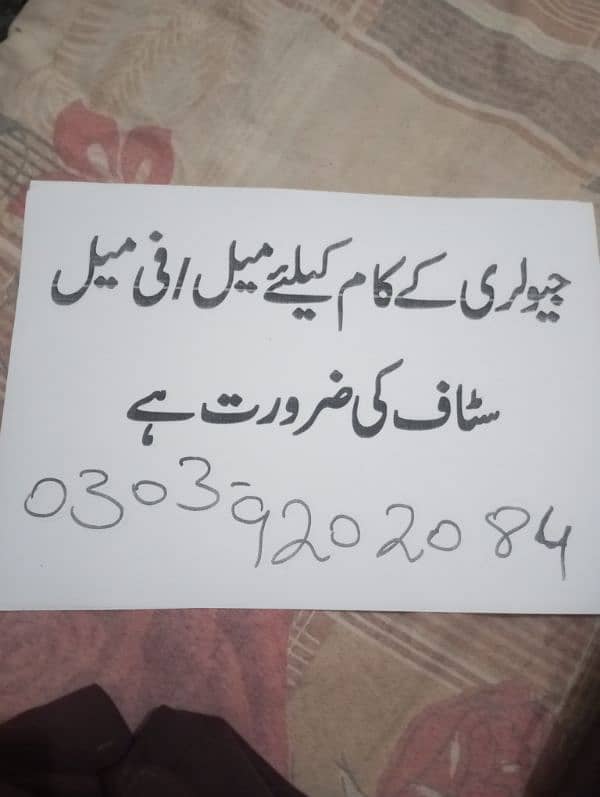 جیولری کے کام کیلئے میل/فی میل
سٹاف کی ضرورت ہے
0303-9202084